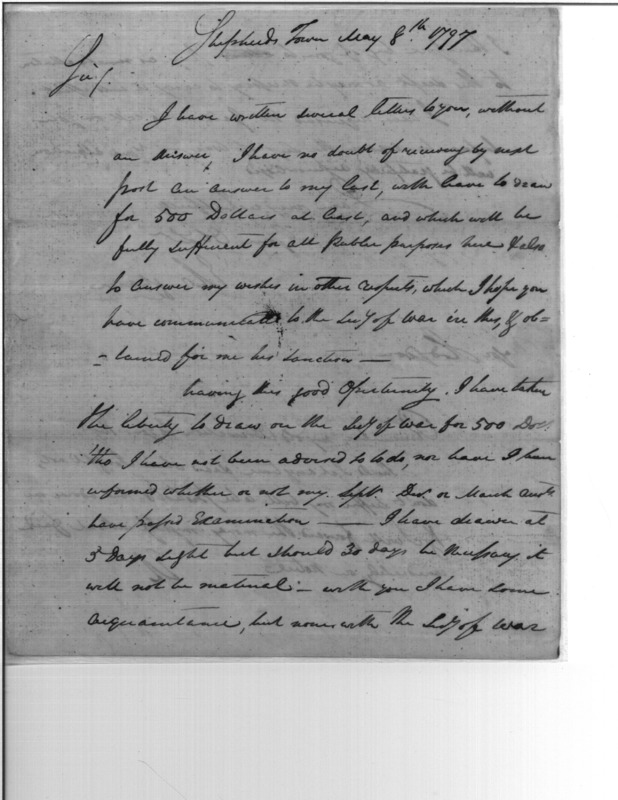 Shepherds Town May 8th 1797
Sir/
I have written several letters to you, without
an answer, I have no doubt of receiving by next
post an answer to my last, with leave to draw
for 500 Dollars at least, and which will be
fully sufficient for all Public purposes here & also
to answer my wishes in other respects, which I hope you
have communicated to the Secy of War ere this, & ob-
-tained for me his Sanction —
having this good Opportunity. I have taken
the liberty to draw on the Secy of War for 500 Doll.
tho I have not been advised to do, nor have I been
informed whether or not my Sept. Decr. or March
have passed Examination — I have drawn at
5 days sight but should 30 days be necessary it
will not be material — with you I have some
acquaintance, but none with the Secy of War